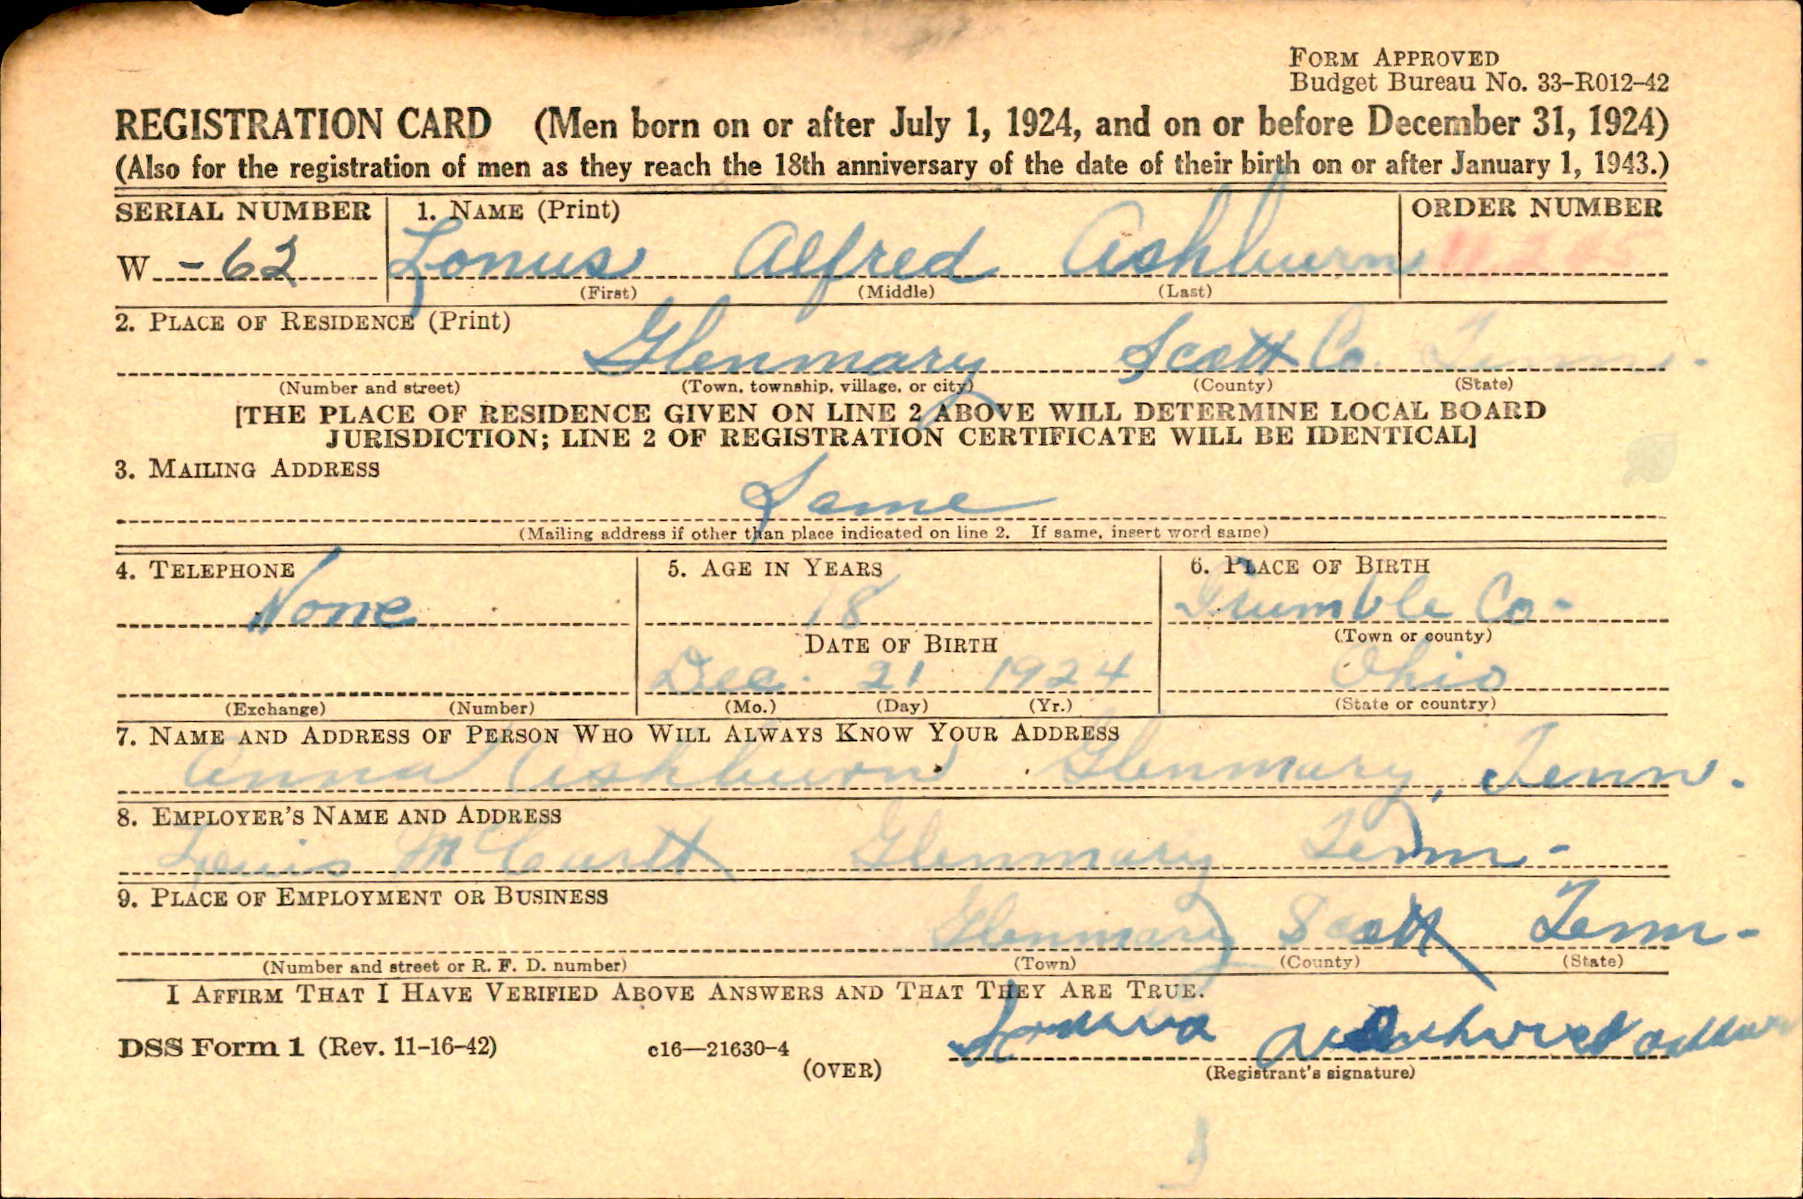 FORM APPROVED
Budget Bureau No. 33-R012-42
REGISTRATION CARD (Men born on or after July 1, 1924, and on or before December 31, 1924)
(Also for the registration of men as they reach the 18th anniversary of the date of their birth on or after January 1, 1943.)
SERIAL NUMBER 1. NAME (Print) ORDER NUMBER
W -62 Lonus Alfred Ashburn
(First) (Middle) (Last)
2. PLACE OF RESIDENCE (Print)
Glenmary Scott Co. Tenn.
(Number and street) (Town, township, village, or city) (County) (State)
[THE PLACE OF RESIDENCE GIVEN ON LINE 2 ABOVE WILL DETERMINE LOCAL BOARD
JURISDICTION; LINE 2 OF REGISTRATION CERTIFICATE WILL BE IDENTICAL]
3. MAILING ADDRESS
Same
(Mailing address if other than place indicated on line 2. If same, insert word same)
4. TELEPHONE 5. AGE IN YEARS 6. PLACE OF BIRTH
None 18 Trumble Co-
DATE OF BIRTH (Town or county)
Dec. 21 1924 Ohio
(Exchange) (Number) (Mo.) (Day) (Yr.) (State or country)
7. NAME AND ADDRESS OF PERSON WHO WILL ALWAYS KNOW YOUR ADDRESS
Anna Ashburn. Glenmary, Tenn.
8. EMPLOYER'S NAME AND ADDRESS
Louis McCartt Glenmary Tenn-
9. PLACE OF EMPLOYMENT OR BUSINESS
Glenmary Scott Tenn-
(Number and street or R. F. D. number) (Town) (County) (State)
I AFFIRM THAT I HAVE VERIFIED ABOVE ANSWERS AND THAT THEY ARE TRUE.
DSS Form 1 (Rev. 11-16-42) c16—21630-4
(OVER) (Registrant's signature)